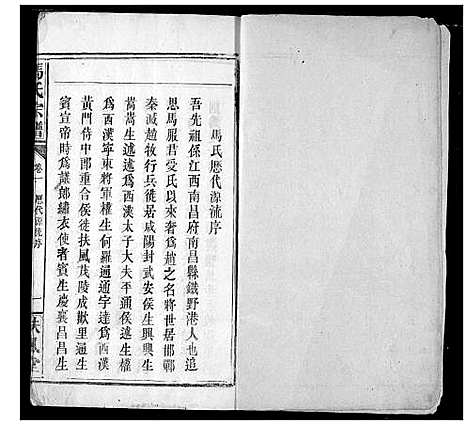 馬氏歷代源流序
吾先祖係江西南昌府南昌縣鐵野港人也追
思馬服君受氏以來奢爲趙之名將世居邯鄲
秦滅趙牧行兵徙居咸陽封武安侯生興興生
嵩嵩生述述生西漢太子大夫平通侯述生權
爲西漢寧東將軍權生何羅通通字達爲西漢
黃門侍中郎重合侯徙扶風茂陵成歡里通生
賓宣帝時爲議郎繡衣使者賓生慶襄昌昌生
馬氏宗譜
卷一
歷代源流序
一
扶風堂